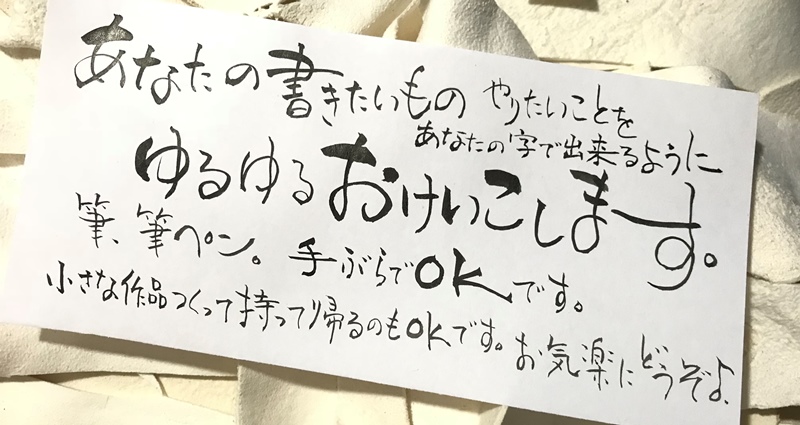 あなたの書きたいもの やりたいことを
あなたの字で出来るように
ゆるゆるおけいこします。
筆、筆ペン。手ぶらでOKです。
小さな作品つくって持って帰るのもOKです。お気楽にどうぞよ、